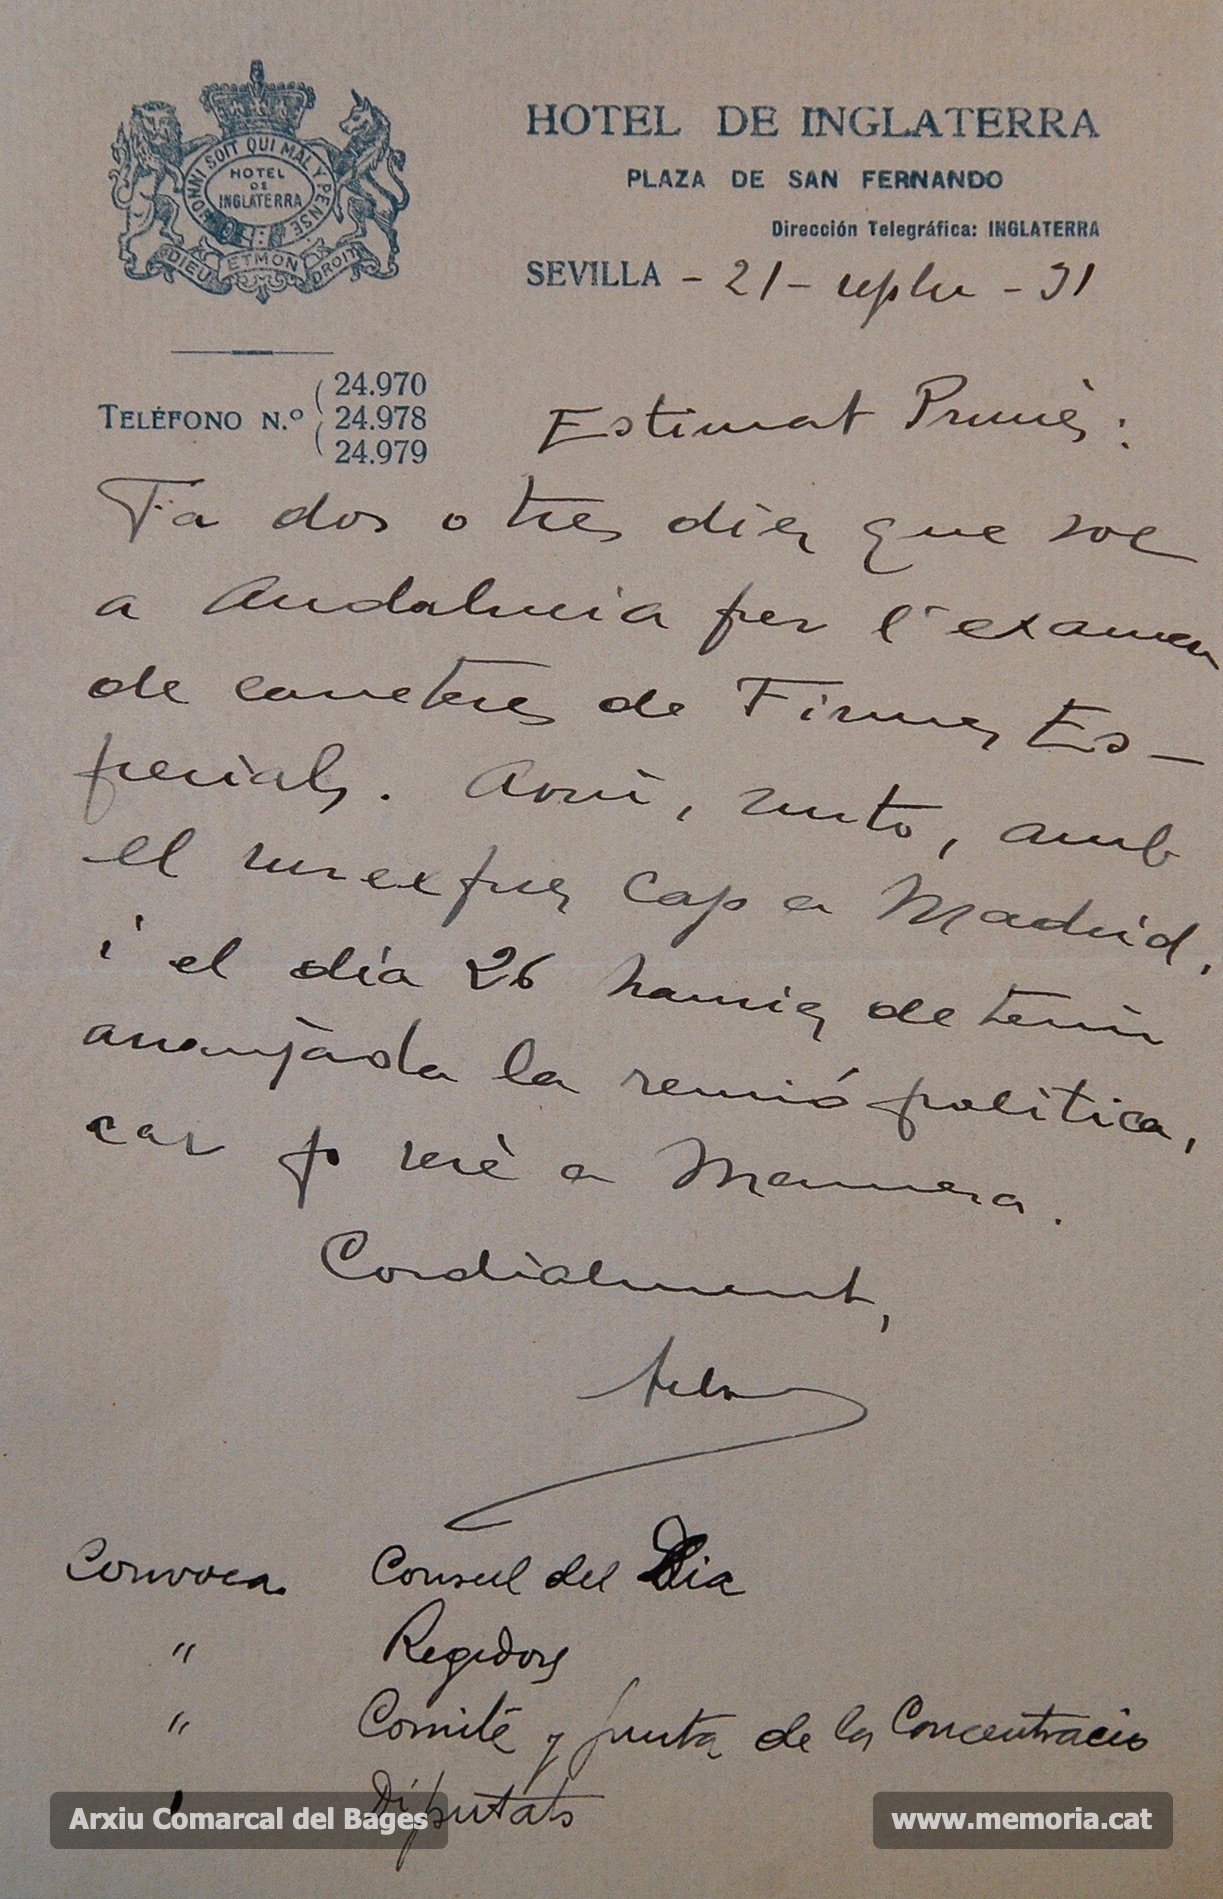 HONNI SOIT QUI MAL Y PENSE
HOTEL
DE
INGLATERRA
DIEU ET MON DROIT
HOTEL DE INGLATERRA
PLAZA DE SAN FERNANDO
Dirección Telegráfica: INGLATERRA
SEVILLA - 21 - - 31
TELÉFONO N.º
24.970
24.978
24.979
Estimat Prunés:
Fa dos o tres dies que soc
a Andalucia per l'examen
de carreteres de Firmes Es-
pecials. Avui, surto, amb
el surexpres cap a Madrid,
i el dia 26 hauries de tenir
arranjada la reunió política,
car jo seré a Manresa.
Cordialment,
Convoca Consell del Dia
" Regidors
" Comité y junta de la Concentracio
" Diputats
Arxiu Comarcal del Bages
www.memoria.cat